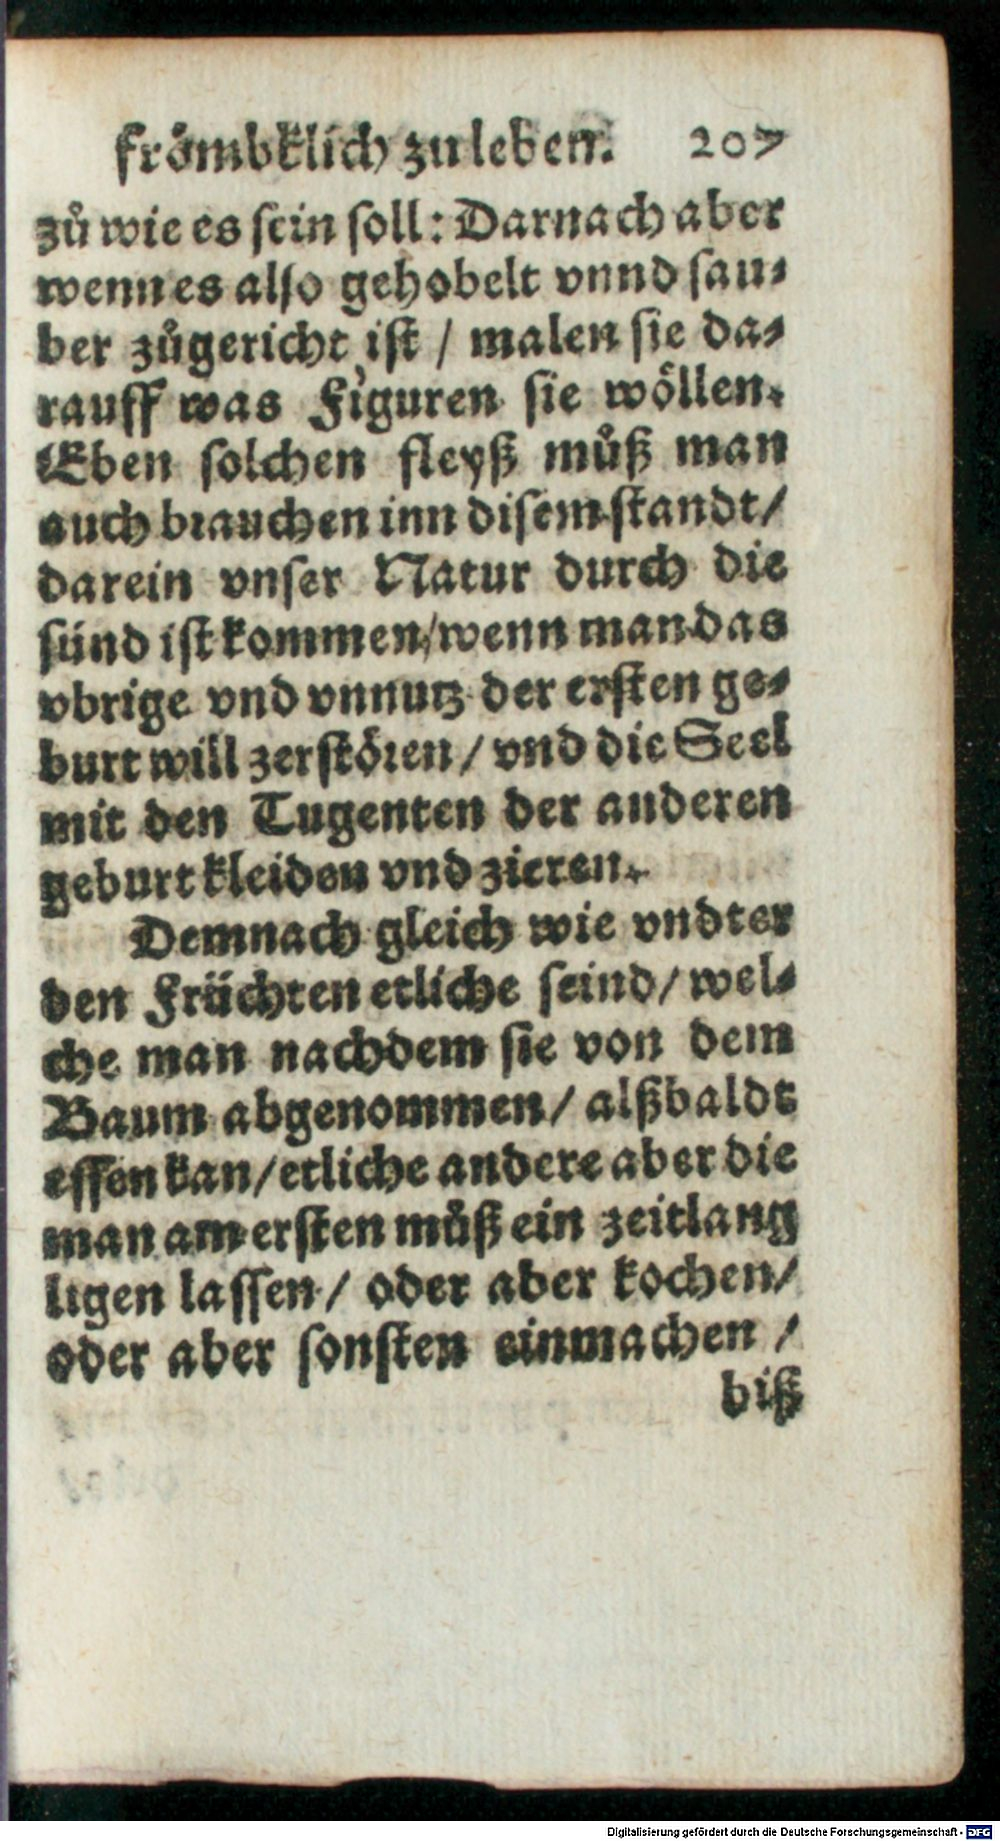 frömbklich zu leben. 207
zů wie es sein soll: Darnach aber
wenn es also gehobelt vnnd sau-
ber zůgericht ist / malen sie da-
rauff was Figuren sie wöllen.
Eben solchen fleyß můß man
auch brauchen inn disem standt/
darein vnser Natur durch die
sünd ist kommen/wenn man das
vbrige vnd vnnutz der ersten ge-
burt will zerstören / vnd die Seel
mit den Tugenten der anderen
geburt kleiden vnd zieren.
Demnach gleich wie vndter
den Früchten etliche seind/ wel-
che man nachdem sie von dem
Baum abgenommen/ alßbaldt
essen kan/etliche andere aber die
man am ersten můß ein zeitlang
ligen lassen / oder aber kochen/
oder aber sonsten einmachen /
biß
Digitalisierung gefördert durch die Deutsche Forschungsgemeinschaft - DFG